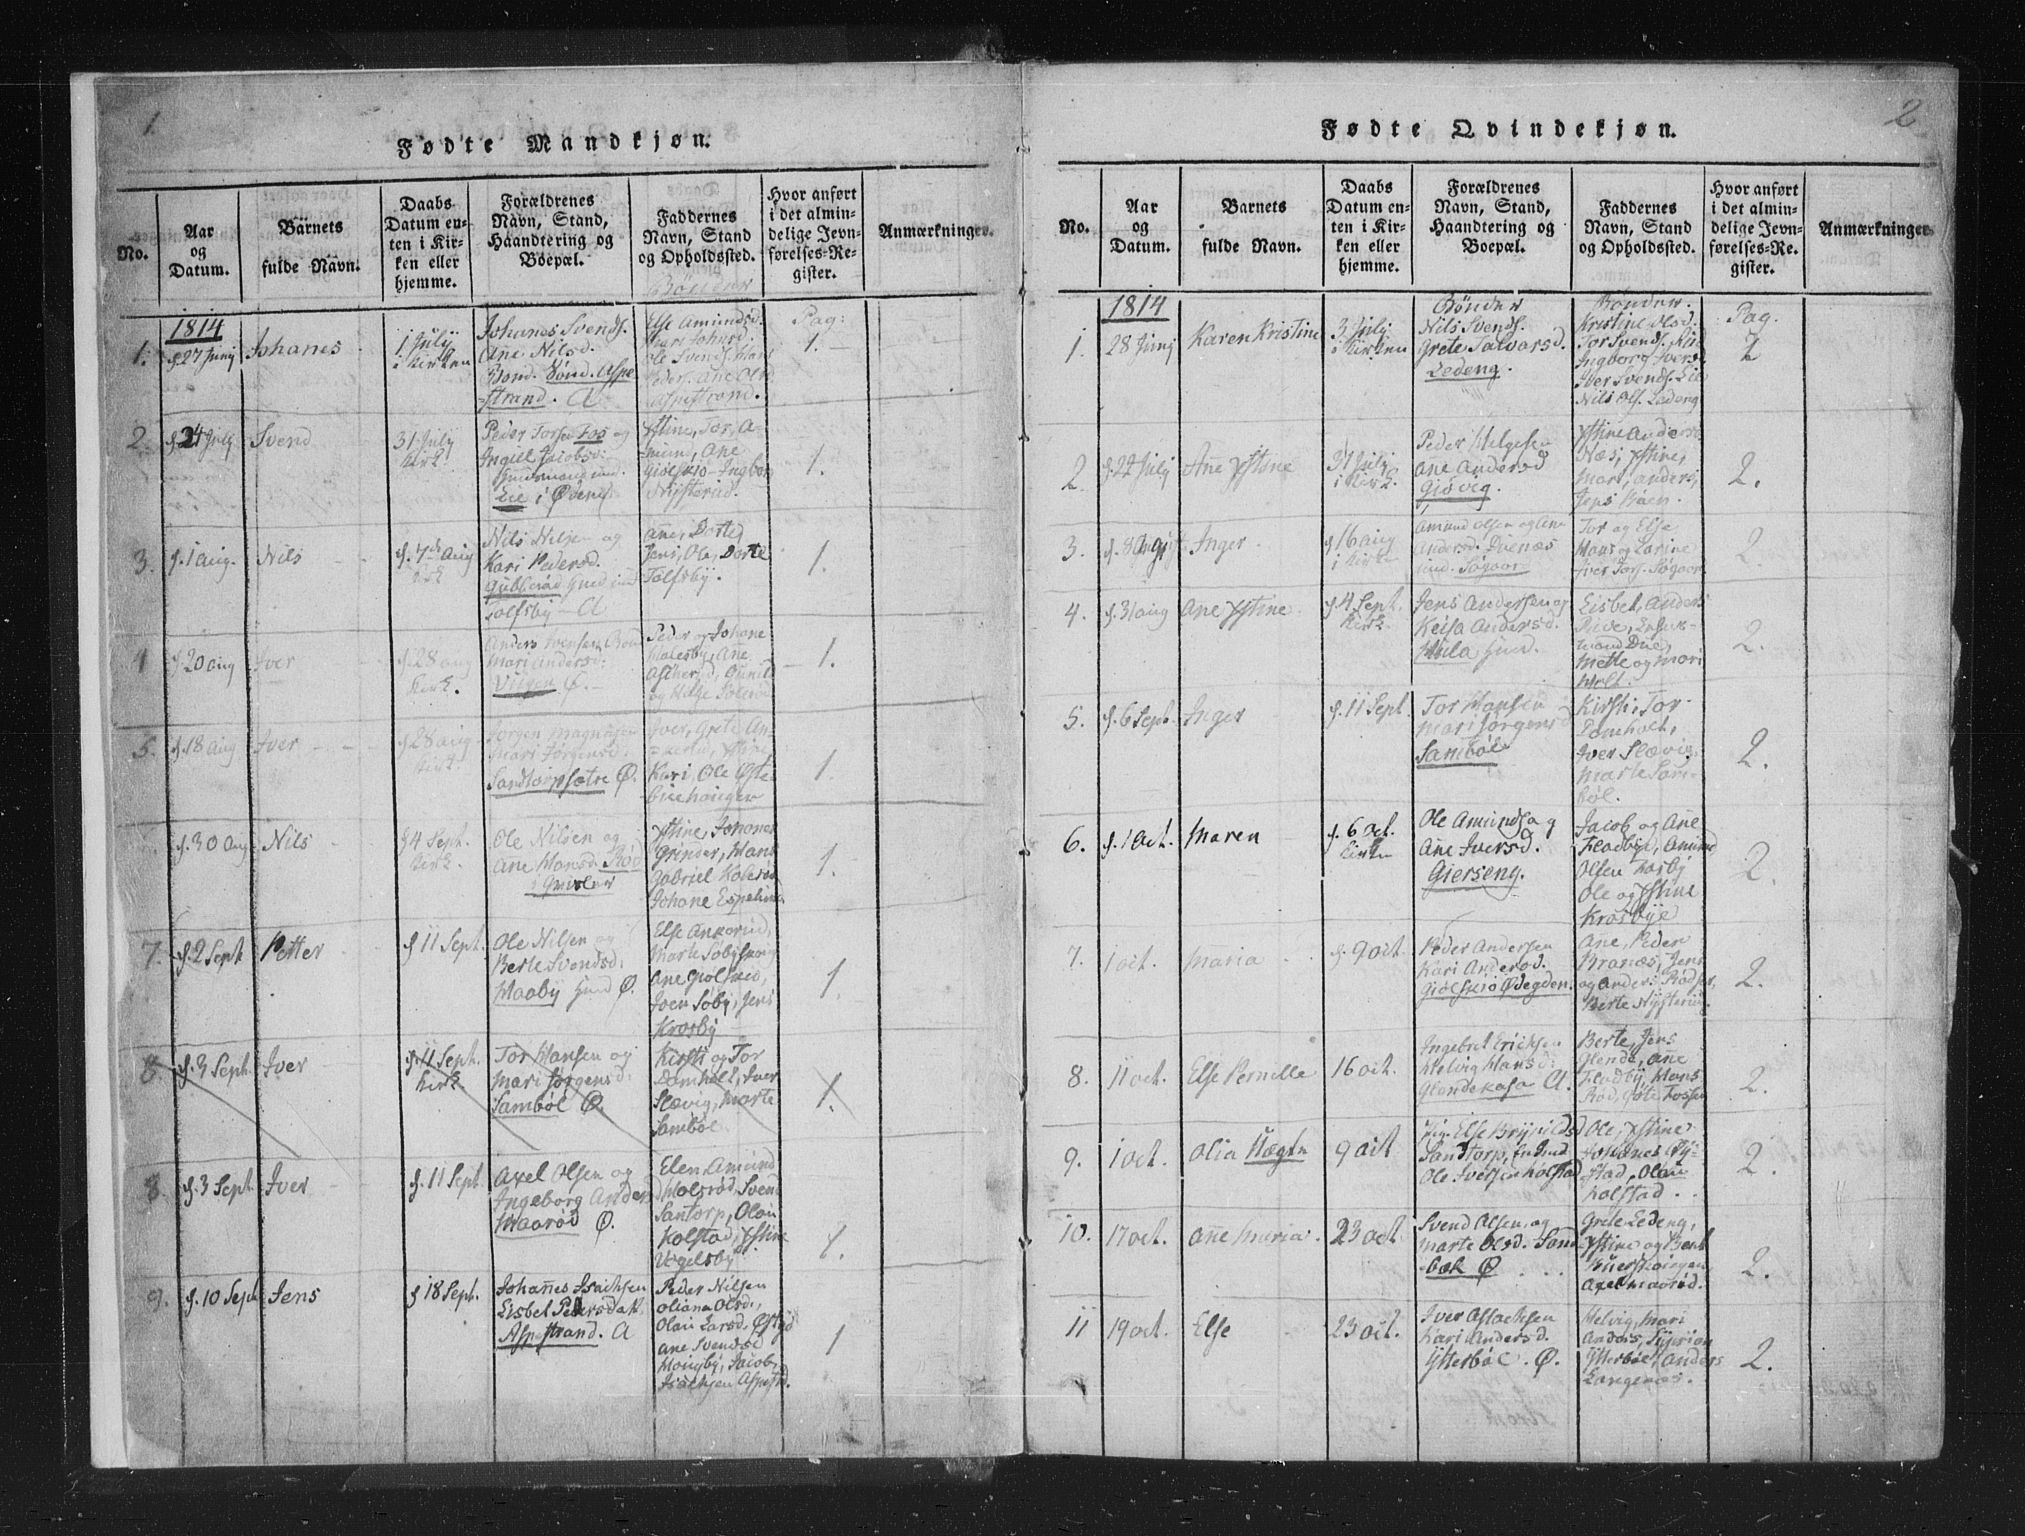 1.
Fødte Mandkjøn.
No.
Aar
og
Datum.
Barnets
fulde Navn.
Daabs
Datum en-
ten i Kir-
ken eller
hjemme.
Forældrenes
Navn, Stand,
Haandtering og
Boepæl.
Faddernes
Navn, Stand
og Opholdssted.
Hvor anført
i det almin-
delige Jevn-
førelses-Re-
gister.
Anmærkninger.
Bønder
1814
1.
f. 27 Junij
Johanes
1 July
i Kirken
Johanes Svends.
Ane Nilsd.
Bond. Sønd. Aspe
strand. A
Else Amundsd.
Ole Svends. Hans
Peders. Ane Olsd.
Aspestrand.
Pag:
1.
2.
f. 24 July
Svend
31 July
Kirk.
Peder Torsen Fos og
Ingiel Jacobsd.
Huusmand und.
Eie i Ødenes
Xstine, Tor, A-
mun, Ane
Giølskiø Ingbor
Nysterud.
1.
3.
f. 1 Aug.
Nils
f. 7de Aug
Kirk
Nils Nilsen og
Kari Pedersd.
Gubberød Huusd und
Tolfsby A
Ane, Dorte,
Jens, Ole, Dorte
Tolfsby.
1.
4
f. 20 aug
Iver
f. 28 aug
Kirk.
Anders Svensen Bon
Mari Andersd:
Viigen Ø.
Peder og Johane
Holesby, Ane
Aschersd, Gunild
og Helge Solerød
1.
5.
f. 18 aug
Iver
f. 28 aug
Kirk.
Jorgen Magnusen
Mari Jørgensd.
Sandtorpsætre Ø.
Iver, Grete An-
kerud, Xstine
Kari, Ole Øste
Buehaugen
1.
f. 30 Aug
Nils
f 4 Sept.
Kirk.
Ole Nilsen og
Ane Hansd. Rød
Xstine, Johanes
Grinder, Hans
Gabriel Kolerød
Johane Espelund
1.
7.
f. 2 Sept
Petter
f 11 Sept.
Ole Nilsen og
Berte Svendsd:
Haaby Huusd Ø.
Else Ankerud,
Marte Søby
Ane Giølstad,
Iven Søby, Jens
Krosby
1.
8.
f. 3 Sept.
Iver
f. 11 Sept.
Kirk
Tor Hansen og
Mari Jørgensd:
Sambøl Ø.
Kirsti og Tor
Damholt, Iver
Slævig, Marte
Sambøl
1.
8.
f. 3 Sept.
Iver
f. 11 Sept
Axel Olsen og
Ingeborg Anders
Maarød Ø.
Elen, Amund
Holsrød, Svend
Santorp, Olau
Kolstad, Xstine
Vogelsby
1.
9.
f. 10 Sept
Jens
f 18 Sept.
Johanes Isachsen
Lisbet Pedersdat
Aspestrand. A
Peder Nilsen
Oliana Olsd.,
Olau Larsd. Østad
Ane Svendsd
Haugby, Jacob
Isachsen Aspestrd.
1
2
Fødte Qvindekjøn.
No.
Aar
og
Datum.
Barnets
fulde Navn.
Daabs
Datum en-
ten i Kir-
ken eller
hjemme.
Forældrenes
Navn, Stand,
Haandtering og
Boepæl.
Faddernes
Navn, Stand
og Opholdssted.
Hvor anført
i det almin-
delige Jevn-
førelses-Re-
gister.
Anmærkninger.
1814
1.
28 Junij
Karen Kristine
3 July
i Kirken
Bønder
Nils Svends.
Grete Talvarsd.
Ledeng.
Bønder.
Kristine Olsd.
Tor Svends. Lie
Ingborg Ivers
Iver Svends. Lie
Nils Ols. Ledeng
Pag.
2
2.
f. 22 July
Ane Xstine
31 July
i Kirk.
Peder Helgesen
Ane Andersd
Giøvig.
Xstine Anders
Næs, Xstine,
Mari, Anders,
Jens Haen.
2.
3.
f. 8 August
Inger
f 16 aug
i Kirken
Amund Olsen og Ane
Andersd. Duenæs
und. Søgaar
Tor og Else
Hans og Karine
Iver Tors. Søgaar
2.
4.
f. 31 aug
Ane Xstine
f 4 Sept.
Kirk.
Jens Andersen og
Keisa Andersd.
Huila Huusd.
Lisbet, Anders
Rive,
Mette og Mari
Holt.
2.
5.
f. 6 Sept.
Inger
f. 11 Sept.
Tor Hansen
Mari Jørgensd
Sambøl
Kirsti, Tor
Damholt,
Iver Slævig
Marte Sam-
bøl.
2.
6.
f. 1 Oct.
Maren
f. 6 Oct.
Kirken
Ole Amunds og
Ane Iversd.
Gierseng.
Jacob og Ane
Fladbye, Amund
Olsen Kasby
Ole og Xstine
Krosbye
2.
7.
1 oct.
Maria
f. 9 oct
Peder Andersen
Kari Andersd.
Giølskiø Ødegden.
Ane, Peder
Branæs, Jens
og Anders Rødser,
Berte Nysterud
2.
8.
11 oct.
Else Pernille
16 oct.
Ingebret Erichsen
Helvig Hansd:
Glendekasa A.
Berte, Jens
Glende, Ane
Fladby, Hans
Rød, Gote Fosser
2.
9.
1 oct.
Olia Uægte
9 oct
Pig. Else Brynildsd
Sandtorp, En Und
Ole Iversen Kolstad
Ole, Xstine
Johanes By-
stad, Olau
Kolstad.
2.
10.
17 oct.
Ane Maria.
23 oct.
Svend Olsen og
Marte Olsd. Sand
bæk Ø
Grete Ledeng,
Xstine og Bent
Buerhaugen
Axel Maarød.
2.
11
19 oct.
Else
23 oct.
Iver Aslachsen
Kari Andersd.
Ytterbøl. Ø.
Helvig, Mari
Anders, Syverien
Ytterbøl, Anders
Langenæs.
2.